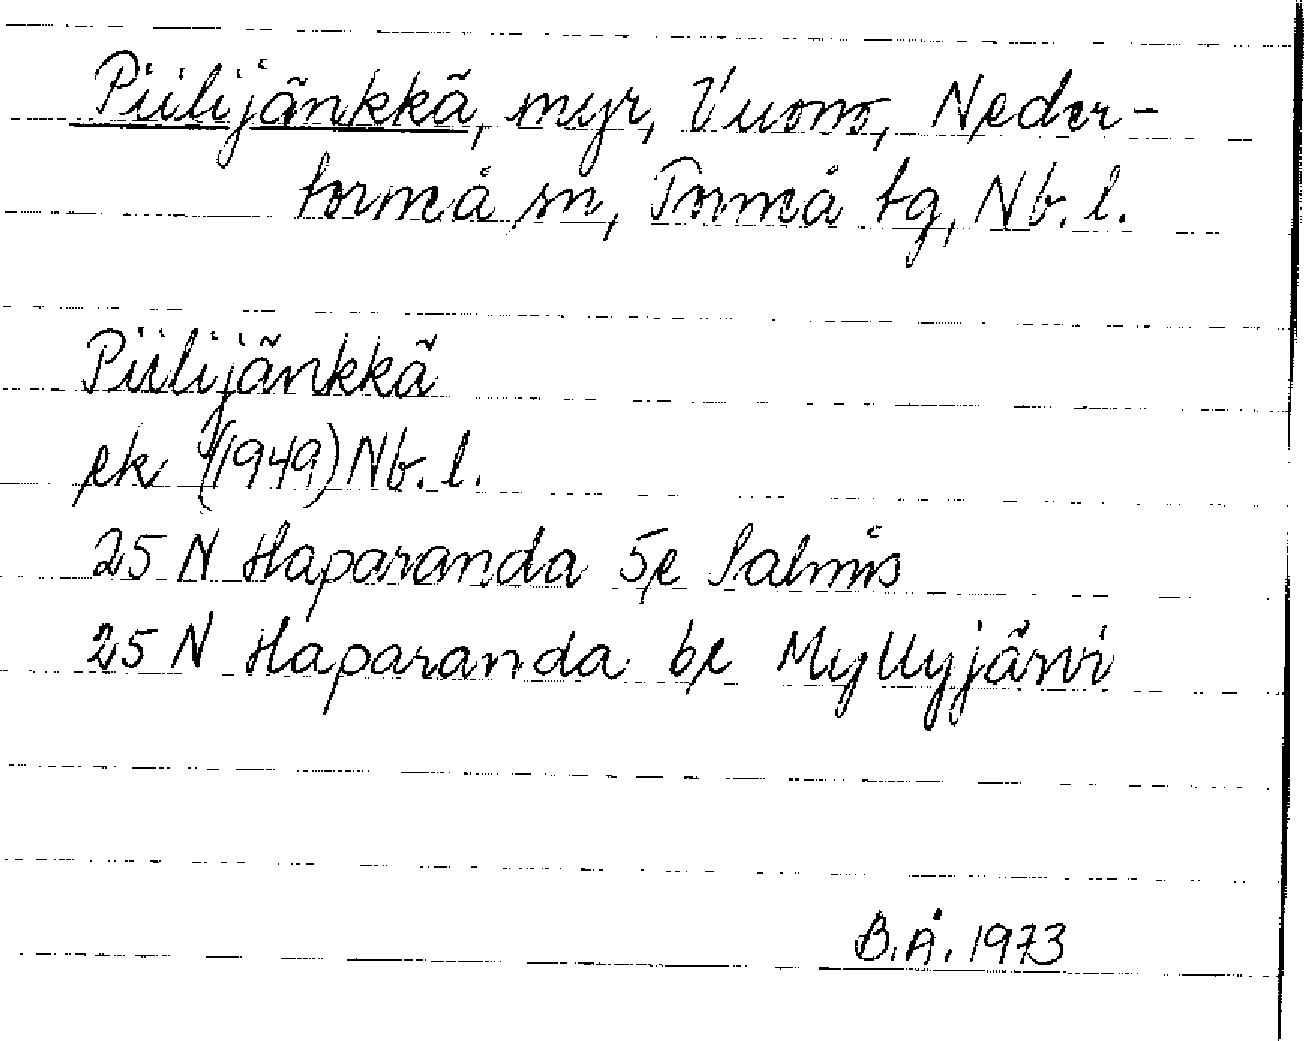 Piilijänkkä, myr, Vuono, Neder-
torneå sn, Torneå tg, Nb. l.
Piilijänkkä
ek (1949) Nb. l.
25 N Haparanda 5e Salmis
25 N Haparanda 6e Myllyjärvi
B.Å. 1973